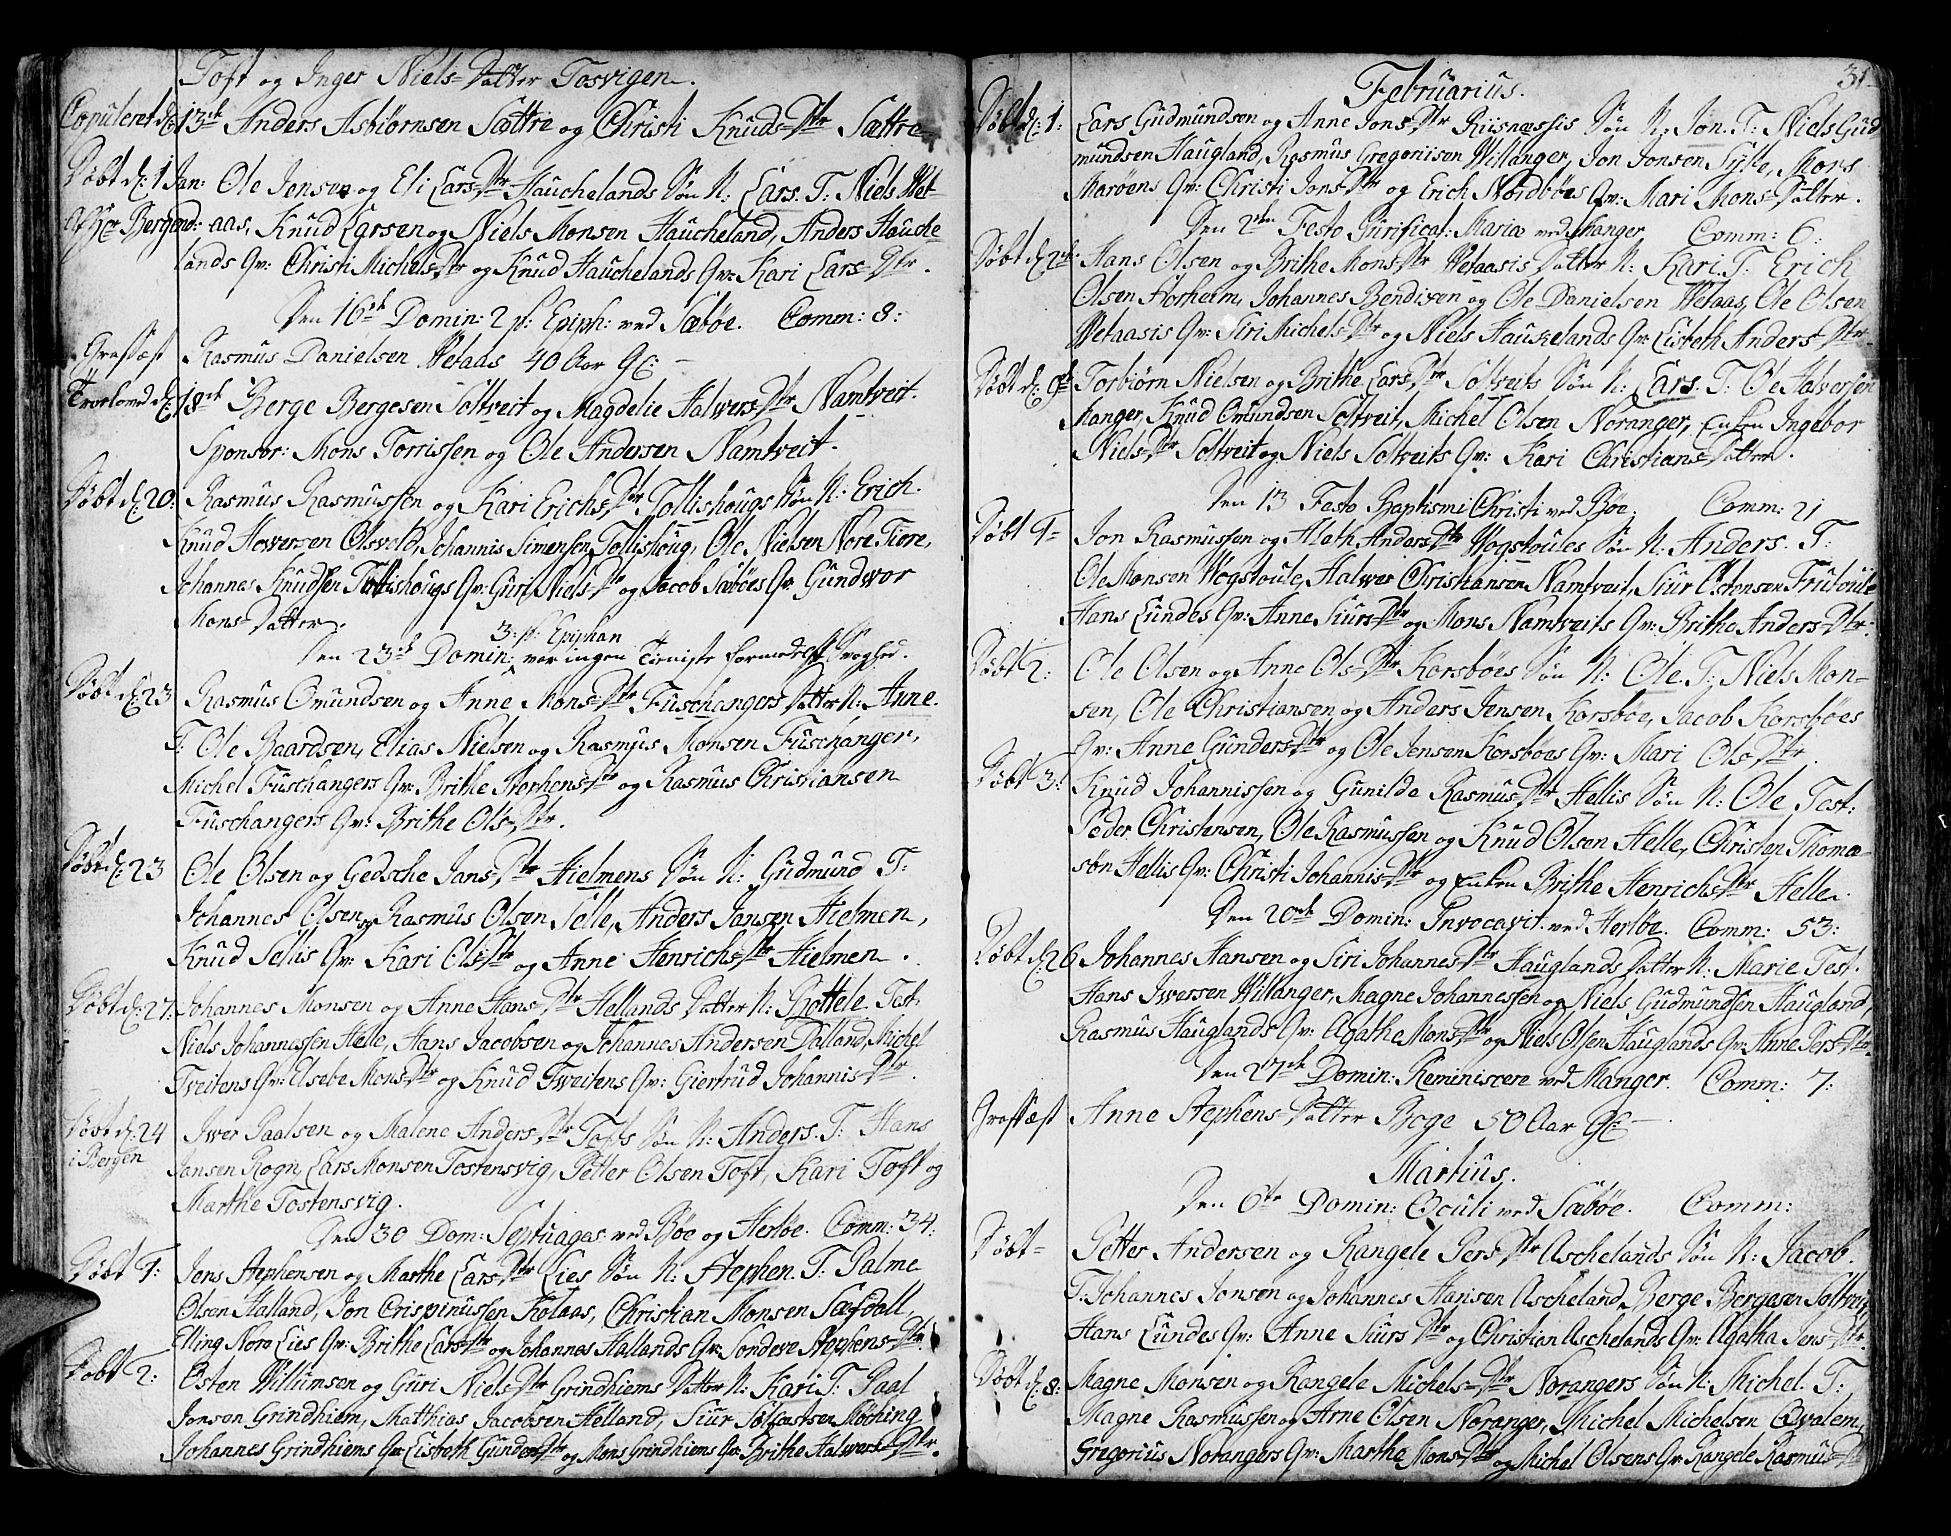 Toft og Inger Niels-Datter Tosvigen.
Copuleret d: 13de Anders Asbiörnsen Sættre og Christi Knuds-Dtr Sættre
Döbt d: 1 Jan: Ole Jensen og Eli Lars-Dtr Hauchelands Sön N: Lars. T: Niels Wet-
af Hr Bergend: aas, Knud Larsen og Niels Monsen Haucheland, Anders Hauche-
lands Qv: Christi Michels-Dtr og Knud Hauchelands Qv: Kari Lars-Dtr.
Den 16de Domin: 2 p: Epiph: ved Sæböe. Comm: 8:
Graffæst Rasmus Danielsen Wetaas 40 Aar gl:
Trorlowed d: 18de Berge Bergesen Soltveit og Magdelie Halvers-Dtr Namtveit.
Sponsor: Mons Torrissen og Ole Andersen Namtveit.
Döbt d: 20: Rasmus Rasmussen og Kari Erichs-Dtr Tollishougs Sön N: Erich.
Knud Hosversen Olsvold, Johannis Simensen Tollishoug, Ole Nielsen Nore Fiore,
Johannes Knudsen Tollishougs Qv: Guri Niels-Dtr og Jacob Sæböes Qv: Gundvor
Mons-Datter.
3: p: Epiphan
Den 23de Domin: var ingen Tieniste formedelst Svaghed.
Döbt d: 23 Rasmus Omundsen og Anne Mons-Dtr Fuschangers Datter N: Anne.
T: Ole Baardsen, Elias Nielsen og Rasmus Monsen Fuschanger,
Michel Fuschangers Qv: Brithe Stephens-Dtr og Rasmus Christiansen
Fuschangers Qv: Brithe Ols-Dtr.
Döbt d: 23 Ole Olsen og Gedsche Jans-Dtr Hielmens Sön N: Gudmund T:
Johannes Olsen og Rasmus Olsen Selle, Anders Jansen Hielmen,
Knud Sellis Qv: Kari Ols-Dtr og Anne Henrichs-Dtr Hielmen.
Döbt d: 27: Johannes Monsen og Anne Hans-Dtr Hellands Datter N: Lottele. Test:
Niels Johannessen Helle, Hans Jacobsen og Johannes Andersen Dalland, Michel
Tveitens Qv: Asebe Mons-Dtr og Knud Tveitens Qv: Giertrud Johannis-Dtr.
Döbt d: 24 Iwer Paalsen og Malene Anders-Dtr Tofts Sön N: Anders. T: Hans
i Bergen Jansen Rogn, Lars Monsen Tostensvig, Petter Olsen Toft, Kari Toft og
Marthe Tostensvig.
Den 30 Dom: Septuages ved Böe og Herlöe. Comm: 34:
Döbt 1: Jens Stephensen og Marthe Lars-Dtr Lies Sön N: Stephen. T: Palme
Olsen Halland, Jon Crispinussen Kolaas, Christian Monsen Sægdall,
Elling Nore Lies Qv: Brithe Lars-Dtr og Johannes Hallands Qv: Sondeve Stephens-Dtr.
Döbt 2: Osten Willumsen og Guri Niels-Dtr Grindhiems Datter N: Kari T: Paal
Jonsen Grindhiem, Mathias Jacobsen Helland, Siur Sölfastsen Möching
Johannes Grindhiems Qv: Lisbeth Gunders-Dtr og Mons Grindhiems Qv: Brithe Halvers-Dtr.
31
Februarius.
Döbt d: 1: Lars Gudmundsen og Anne Jons-Dtr Riisnæssis Sön N: Jon. T: Niels Gud
mundsen Haugland, Rasmus Gregoriisen Willanger, Jon Jonsen Sylte, Mons
Maröens Qv: Christi Jons-Dtr og Erich Nordböes Qv: Mari Mons-Datter.
Den 2den Festo Purificat: Mariæ ved Manger Comm: 6:
Döbt d: 2de Hans Olsen og Brithe Mons-Dtr Wetaasis Datter N: Kari. T: Erich
Olsen Norheim, Johannes Bendixen og Ole Danielsen Wetaas, Ole Olsen
Wetaasis Qv: Siri Michels-Dtr og Niels Hauskelands Qv: Lisbeth Anders-Dtr.
Döbt d: 9de Torbiörn Nielsen og Brithe Lars-Dtr Soltveits Sön N: Lars. T: Ole Halversen
Manger, Knud Omundsen Soltveit, Michel Olsen Noranger, Enken Ingebor
Niels-Dtr Soltveit og Niels Soltveits Qv: Kari Christians-Datter.
Den 13 Festo Baptismi Christi ved Böe. Comm: 21
Döbt 1- Jon Rasmussen og Aleth Anders-Dtr Wogstoules Sön N: Anders. T:
Ole Monsen Wogstoule, Halvor Christiansen Namtveit, Siur Ostensen Friestoule
Hans Lundes Qv: Anne Siurs-Dtr og Mons Namtveits Qv: Brithe Anders-Dtr.
Döbt 2: Ole Olsen og Anne Ols-Dtr Korsboes Sön N: Ole T: Niels Mon-
sen, Ole Christiansen og Anders Jensen Korsböe, Jacob Korsböes
Qv: Anne Gunders-Dtr og Ole Jensen Korsboes Qv: Mari Ols-Dtr.
Döbt 3: Knud Johannissen og Gunilde Rasmus-Dtr Hellis Sön N: Ole Test:
Peder Christensen, Ole Rasmussen og Knud Olsen Helle, Christen Thoma-
sön Hellis Qv: Christi Johannis-Dtr og Enken Brithe Henrichs-Dtr Helle.
Den 20de Domin: Invocavit ved Herlöe. Comm: 53:
Döbt d: 26 Johannes Hansen og Siri Johannes-Dtr Hauglands Datter N: Marie Test.
Hans Iwersen Willanger, Magne Johannessen og Niels Gudmundsen Haugland,
Rasmus Hauglands Qv: Agathe Mons-Dtr og Niels Olsen Hauglands Qv: Anne Pers-Dtr.
Den 27de Domin: Reminiscere ved Manger. Comm: 7:
Graffæst Anne Stephens-Datter Boge 50 Aar gl:
Martius.
Den 6te Domin: Oculi ved Sæböe. Comm:
Döbt- Petter Andersen og Rangele Pers-Dtr Aschelands Sön N: Jacob.
T: Johannes Jonsen og Johannes Hansen Ascheland, Berge Bergesen Soltveit
Hans Lundes Qv: Anne Siurs-Dtr og Christian Aschelands Qv: Agatha Jens-Dtr
Döbt d: 8: Magne Monsen og Rangele Michels-Dtr Norangers Sön N: Michel. T:
Magne Rasmussen og Arne Olsen Noranger, Michel Michelsen Qvalem,
Gregorius Norangers Qv: Marthe Mons-Dtr og Michel Olsens Qv: Rangele Rasmus-Dtr